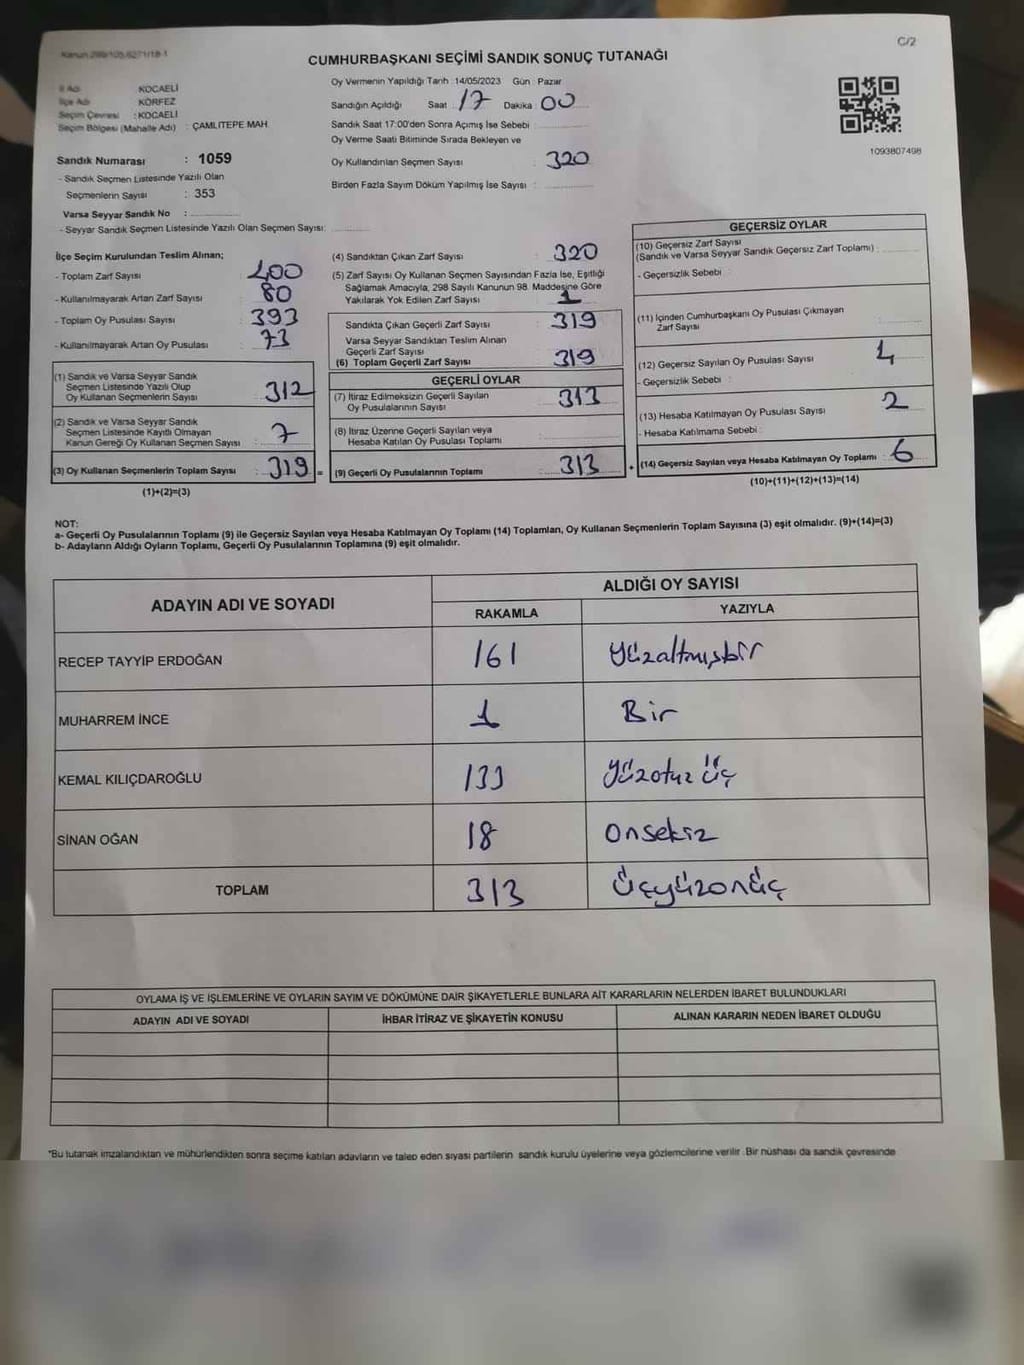 Kanun 298/105,6271/18-1
C/2
CUMHURBAŞKANI SEÇİMİ SANDIK SONUÇ TUTANAĞI
İl Adı KOCAELİ
İlçe Adı KÖRFEZ
Seçim Çevresi : KOCAELİ
Seçim Bölgesi (Mahalle Adı) : ÇAMLITEPE MAH.
Sandık Numarası : 1059
- Sandık Seçmen Listesinde Yazılı Olan
Seçmenlerin Sayısı : 353
Varsa Seyyar Sandık No :
- Seyyar Sandık Seçmen Listesinde Yazılı Olan Seçmen Sayısı:
Oy Vermenin Yapıldığı Tarih : 14/05/2023 Gün : Pazar
Sandığın Açıldığı Saat : 17 Dakika : 00
Sandık Saat 17:00'den Sonra Açımış İse Sebebi :
Oy Verme Saati Bitiminde Sırada Bekleyen ve
Oy Kullandırılan Seçmen Sayısı : 320
Birden Fazla Sayım Döküm Yapılmış İse Sayısı :
1093807498
İlçe Seçim Kurulundan Teslim Alınan;
- Toplam Zarf Sayısı : 400
- Kullanılmayarak Artan Zarf Sayısı : 80
- Toplam Oy Pusulası Sayısı : 393
- Kullanılmayarak Artan Oy Pusulası : 73
(1) Sandık ve Varsa Seyyar Sandık
Seçmen Listesinde Yazılı Olup
Oy Kullanan Seçmenlerin Sayısı : 312
(2) Sandık ve Varsa Seyyar Sandık
Seçmen Listesinde Kayıtlı Olmayan
Kanun Gereği Oy Kullanan Seçmen Sayısı : 7
(3) Oy Kullanan Seçmenlerin Toplam Sayısı : 319 =
(1)+(2)=(3)
(4) Sandıktan Çıkan Zarf Sayısı : 320
(5) Zarf Sayısı Oy Kullanan Seçmen Sayısından Fazla İse, Eşitliği
Sağlamak Amacıyla, 298 Sayılı Kanunun 98. Maddesine Göre
Yakılarak Yok Edilen Zarf Sayısı : 1
Sandıkta Çıkan Geçerli Zarf Sayısı : 319
Varsa Seyyar Sandıktan Teslim Alınan
Geçerli Zarf Sayısı
(6) Toplam Geçerli Zarf Sayısı : 319
GEÇERLİ OYLAR
(7) İtiraz Edilmeksizin Geçerli Sayılan
Oy Pusulalarının Sayısı : 313
(8) İtiraz Üzerine Geçerli Sayılan veya
Hesaba Katılan Oy Pusulası Toplamı :
(9) Geçerli Oy Pusulalarının Toplamı : 313 +
GEÇERSİZ OYLAR
(10) Geçersiz Zarf Sayısı
(Sandık ve Varsa Seyyar Sandık Geçersiz Zarf Toplamı) :
- Geçersizlik Sebebi :
(11) İçinden Cumhurbaşkanı Oy Pusulası Çıkmayan
Zarf Sayısı :
(12) Geçersiz Sayılan Oy Pusulası Sayısı : 4
- Geçersizlik Sebebi :
(13) Hesaba Katılmayan Oy Pusulası Sayısı : 2
- Hesaba Katılmama Sebebi :
(14) Geçersiz Sayılan veya Hesaba Katılmayan Oy Toplamı : 6
(10)+(11)+(12)+(13)=(14)
NOT:
a- Geçerli Oy Pusulalarının Toplamı (9) ile Geçersiz Sayılan veya Hesaba Katılmayan Oy Toplamı (14) Toplamları, Oy Kullanan Seçmenlerin Toplam Sayısına (3) eşit olmalıdır. (9)+(14)=(3)
b- Adayların Aldığı Oyların Toplamı, Geçerli Oy Pusulalarının Toplamına (9) eşit olmalıdır.
ADAYIN ADI VE SOYADI ALDIĞI OY SAYISI
RAKAMLA YAZIYLA
RECEP TAYYİP ERDOĞAN 161 Yüzaltmışbir
MUHARREM İNCE 1 Bir
KEMAL KILIÇDAROĞLU 133 Yüzotuz üç
SİNAN OĞAN 18 onsekiz
TOPLAM 313 üçyüzonüç
OYLAMA İŞ VE İŞLEMLERİNE VE OYLARIN SAYIM VE DÖKÜMÜNE DAİR ŞİKAYETLERLE BUNLARA AİT KARARLARIN NELERDEN İBARET BULUNDUKLARI
ADAYIN ADI VE SOYADI İHBAR İTİRAZ VE ŞİKAYETİN KONUSU ALINAN KARARIN NEDEN İBARET OLDUĞU
*Bu tutanak imzalandıktan ve mühürlendikten sonra seçime katılan adayların ve talep eden siyasi partilerin sandık kurulu üyelerine veya gözlemcilerine verilir. Bir nüshası da sandık çevresinde